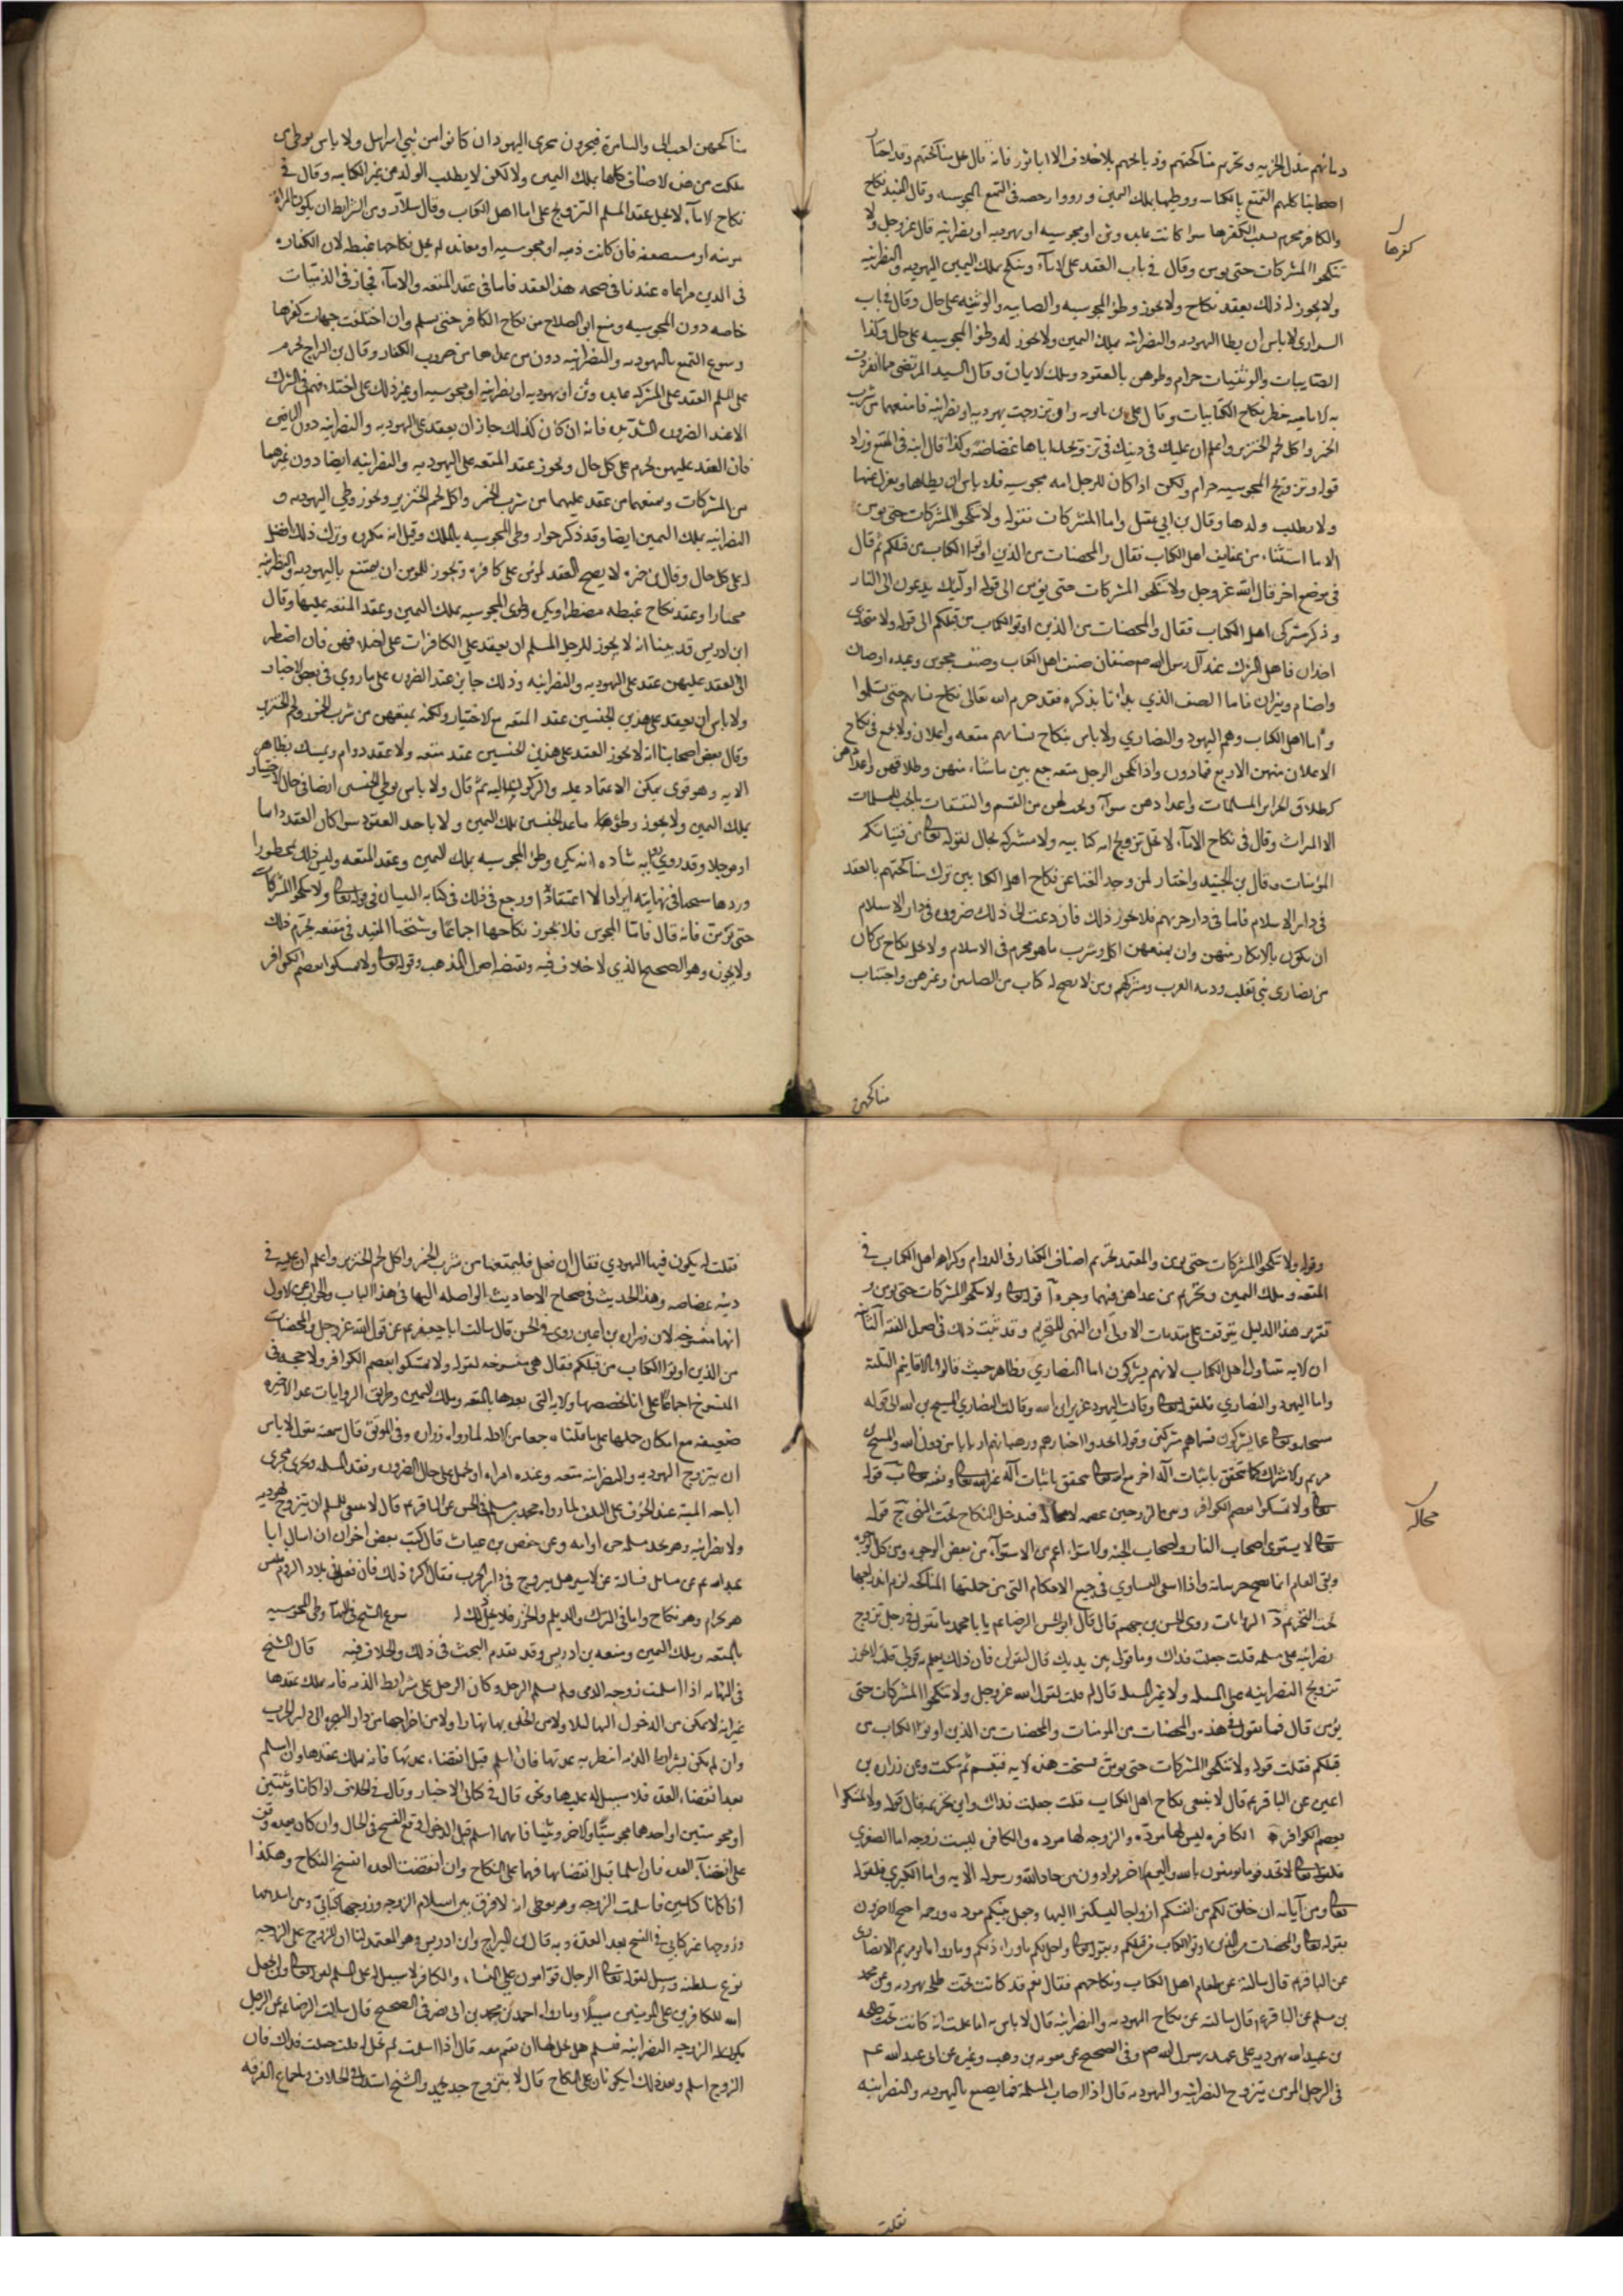 دمائهم ببذل الجزيه وتحريم مناكحتهم وذبائحهم بلا خلاف الا ابا ثور فانه قال يحل مناكحتهم وقد اجاز
اصحابنا كلهم التمتع بالكتابيه ووطيها بملك اليمين ورووا رخصه في التمتع بالمجوسيه وقال المفيد نكاح
والكافر محرم بسبب كفرها سوا كانت عابده وثن او مجوسيه او يهوديه او نصرانيه قال الله عز وجل ولا
كفرها
تنكحوا المشركات حتى يومن وقال في باب العقد على الاماء وينكح بملك اليمين اليهوديه والنصرانيه
ولا يجوز له ذلك بعقد نكاح ولا يجوز وطؤ المجوسيه والصابيه والوثنيه على حال وقال في باب
السراري لا باس ان يطا اليهوديه والنصرانيه بملك اليمين ولا يجوز له وطؤ المجوسيه على حال وكذا
الصابيات والوثنيات حرام وطوهن بالعقود وملك الايمان وقال السيد المرتضى مما انفردت
به الاماميه حظر نكاح الكتابيات وقال علي بن بابويه وان تزوجت يهوديه او نصرانيه فامنعهما من شرب
الخمر واكل لحم الخنزير واعلم ان عليك في دينك في تزويجك اياها غضاضه وكذا قال ابنه في المقنع وزاد
قوله وتزويج المجوسيه حرام ولكن اذا كان للرجل امه مجوسيه فلا باس ان يطاها ويعزل عنها
ولا يطلب ولدها وقال بن ابي عقيل واما المشركات فقوله ولا تنكحوا المشركات حتى يومن
الا ما استثناء من عفايف اهل الكتاب فقال والمحصنات من الذين اوتوا الكتاب من قبلكم ثم قال
في موضع اخر قال الله عز وجل ولا تنكحوا المشركات حتى يؤمن الى قوله اوليك يدعون الى النار
وذكر مشركي اهل الكتاب فقال والمحصنات من الذين اوتوا الكتاب من قبلكم الى قوله ولا متخذي
اخدان فاهل الشرك عند آل رسول الله صم صنفان صنف اهل الكتاب وصنف مجوس وعبده اوثان
واصنام ونيران فاما الصنف الذي بدانا بذكره فقد حرم الله تعالى نكاح نسائهم حتى يسلموا
واما اهل الكتاب وهم اليهود والنصاري ولا باس بنكاح نسائهم متعه واعلان ولا يجمع في نكاح
الاعلان منهن الا اربع فمادون واذا نكحهن الرجل متعه جمع بين ما شاء منهن وطلاقهن واعدادهن
كطلاق الحراير المسلمات واعدادهن سواء ويجب لهن من القسم والنفقات ما يجب للمسلمات
الا الميراث وقال في نكاح الاماء لا يحل تزويج امه كتابيه ولا مشركه بحال لقوله تعالى من فتياتكم
المؤمنات وقال بن الجنيد واختار لمن وجد الغنا عن نكاح اهل الكتابين ترك مناكحتهم بالعقد
في دار الاسلام فاما في دار حربهم فلا يجوز ذلك فان دعت الى ذلك ضروره في دار الاسلام
ان يكون بالابكار منهن وان يمنعهن اكل وشرب ما هو محرم في الاسلام ولا يحل نكاح من كان
من نصارى بني تغلب وذمه العرب ومشركهم ومن لا يصح له كتاب من الصابئين وغيرهن واجتناب
مناكحهن
مناكحهن احب الى والسامرة فيجرون مجرى اليهود ان كانوا من بني اسرايل ولا باس بوطى من
ملكت من هذه الاصناف كلها بملك اليمين ولا لكن لا يطلب الولد من غير الكتابيه وقال في
نكاح الاماء لا يحل عقد المسلم التزويج على اما اهل الكتاب وقال سلار ومن الشرايط ان يكون المراة
مومنه او مستضعفه فان كانت ذميه او مجوسيه او معانده لم يحل نكاحها غبطه لان الكفاءه
في الدين مراعاه عندنا في صحه هذا العقد فاما في عقد المتعه والاماء فجائز في الذميات
خاصه دون المجوسيه ومنع ابو الصلاح من نكاح الكافره حتى تسلم وان اختلفت جهات كفرها
وسوغ التمتع باليهوديه والنصرانيه دون من عداها من ضروب الكفار وقال بن البراج يحرم
على المسلم العقد على المشركه عابده وثن او يهوديه او نصرانيه او مجوسيه او غير ذلك على اختلافهم في الشرك
الا عند الضروره الشديده فانه ان كان كذلك جاز ان يعقد على اليهوديه والنصرانيه دون الباقي
فان العقد عليهن يحرم على كل حال ويجوز عقد المتعه على اليهوديه والنصرانيه ايضا دون غيرهما
من المشركات ويمنعهما من عقد عليهما من شرب الخمر واكل لحم الخنزير ويجوز وطى اليهوديه و
النصرانيه بملك اليمين ايضا وقد ذكر جواز وطى المجوسيه بالملك وقيل انه مكروه وترك ذلك افضل
على كل حال وقال بن حمزه لا يصح العقد لمومن على كافره ويجوز للمومن ان يتمتع باليهوديه والنصرانيه
مختارا وعقد نكاح غبطه مضطرا ويكره وطى المجوسيه بملك اليمين وعقد المتعه عليها وقال
ابن ادريس قد بينا انه لا يجوز للرجل المسلم ان يعقد على الكافرات على اختلافهن فان اضطر
الى العقد عليهن عقد على اليهوديه والنصرانيه وذلك جايز عند الضروره على ما روي في بعض الاخبار
ولا باس ان يعقد على هذين الجنسين عقد المتعه مع الاختيار ولكنه يمنعهن من شرب الخمور ولحم الخنزير
وقال بعض اصحابنا انه لا يجوز العقد على هذين الجنسين عقد متعه ولا عقد دوام وتمسك بظاهر
الايه وهو قوى يمكن الاعتماد عليه والركون اليه ثم قال ولا باس بوطى الجنسين ايضا في حال الاختيار
بملك اليمين ولا يجوز وطؤ ما عدا الجنسين بملك اليمين ولا باحد العقود سوا كان العقد داما
او موجلا وقد روى روايه شاذه انه يكره وطؤ المجوسيه بملك اليمين وعقد المتعه وليس ذلك بمحظور
اوردها شيخنا في نهايته ايرادا لا اعتقادا ورجع في ذلك في كتابه التبيان في قوله تعالى ولا تنكحوا المشركات
حتى يؤمن فانه قال فاما المجوس فلا يجوز نكاحها اجماعا وشيخنا المفيد في مقنعته يحرم ذلك
ولا يجوزه وهو الصحيح الذي لا خلاف فيه وتقتضيه اصول المذهب وقوله تعالى ولا تمسكوا بعصم الكوافر
وقوله ولا تنكحوا المشركات حتى يومن والمعتمد تحريم اصناف الكفار في الدوام وكراهه اهل الكتاب في
المتعه وملك اليمين وتحريم من عداهن فيهما وجوه آ قوله تعالى ولا تنكحوا المشركات حتى يومن و
تقرير هذا الدليل يتوقف على مقدمات الاولى ان النهى للتحريم وقد ثبت ذلك في اصول الفقه الثانيه
ان الايه تتناول اهل الكتاب لانهم يشركون اما النصاري فظاهر حيث قالوا بالاقانيم الثلثة
واما اليهود والنصاري فلقوله تعالى وقالت اليهود عزير ابن الله وقالت النصارى المسيح بن الله الى قوله
سبحانه وتعالى عما يشركون فسماهم مشركين وقوله اتخذوا احبارهم ورهبانهم اربابا من دون الله والمسيح بن
مريم والاشراك كما يتحقق باثبات آله اخر مع الله تعالى يتحقق باثبات آله غير الله تعالى ونفيه تعالى ب قوله
تعالى ولا تمسكوا بعصم الكوافر وبين الزوجين عصمه لا محاله فيدخل النكاح تحت النهي ج قوله
محاله
تعالى لا يستوى اصحاب النار واصحاب الجنه والاستواء اعم من الاستواء من بعض الوجوه ومن كل الوجوه
تحت التحريم د الروايات روى الحسن بن جهم قال قال ابو الحسن الرضا عم يا با محمد ما تقول في رجل تزوج
نصرانيه على مسلمه قلت جعلت فداك وما قولي بين يديك قال لتقولن فان ذلك يعلم به قولي قلت لا يجوز
تزويج النصرانيه على المسلمه ولا غير المسلمه قال لم قلت لقول الله عز وجل ولا تنكحوا المشركات حتى
يؤمن قال فما تقول في هذه والمحصنات من المومنات والمحصنات من الذين اوتوا الكتاب من
قبلكم فقلت قوله ولا تنكحوا المشركات حتى يومن نسخت هذه الايه فتبسم ثم سكت وعن زراره بن
اعين عن الباقر عم قال لا ينبغى نكاح اهل الكتاب قلت جعلت فداك واين تحريمه قال قوله ولا تمسكوا
بعصم الكوافر ه الكافره ليس لها موده والزوجه لها موده والكافره ليست زوجه اما الصغرى
فلقوله تعالى لا تجد قوما يومنون بالله واليوم الاخر يوادون من حاد الله ورسوله الايه واما الكبرى فلقوله
تعالى ومن آياته ان خلق لكم من انفسكم ازواجا لتسكنوا اليها وجعل بينكم موده ورحمه احتج الاخرون
بقوله تعالى والمحصنات من الذين اوتوا الكتاب من قبلكم وبقوله تعالى واحل لكم ما وراء ذلكم وما رواه ابو مريم الانصارى
عن الباقر عم قال سالته عن طعام اهل الكتاب ونكاحهم فقال نعم قد كانت تحت طلحه يهوديه وعن محمد
بن مسلم عن الباقر عم قال سالته عن نكاح اليهوديه والنصرانيه قال لا باس به اما علمت انه كانت تحت طلحه
بن عبيد الله يهوديه على عهد رسول الله صم وفي الصحيح عن معويه بن وهب وغيره عن ابى عبد الله عم
في الرجل المومن يتزوج النصرانيه واليهوديه قال اذا اصاب المسلمه فما يصنع باليهوديه والنصرانيه
فقلت
فقلت له يكون فيها الهوى فقال ان فعل فليمنعها من شرب الخمر واكل لحم الخنزير واعلم ان عليه في
دينه غضاضه وهذا الحديث في صحاح الاحاديث الواصله الينا في هذا الباب والجواب عن الاول
انها منسوخه لان زراره بن اعين روى في الحسن قال سالت ابا جعفر عم عن قول الله عز وجل والمحصنات
من الذين اوتوا الكتاب من قبلكم فقال هي منسوخه بقوله ولا تمسكوا بعصم الكوافر ولا حجه في
المنسوخ اجماعا على انا نخصصها والايه التي بعدها بالمتعه وملك اليمين وطريق الروايات عدا الاخيره
ضعيفه مع امكان حملها على ما قلناه جمعا بين الادله لما رواه زراره وفي الموثق قال سمعته يقول لا باس
ان يتزوج اليهوديه والنصرانيه متعه وعنده امراه او تحمل على حال الضروره وفقد المسلمه وتجرى مجرى
اباحه الميته عند الخوف على التلف لما رواه محمد بن مسلم في الحسن عن الباقر عم قال لا ينبغى للمسلم ان يتزوج يهوديه
ولا نصرانيه وهو يجد مسلمه حره او امه وعن حفص بن غياث قال كتب بعض اخواني ان اسال ابا
عبد الله عم عن مسائل فسالته عن الاسير هل يتزوج في دار الحرب فقال اكره ذلك فان فعل في بلاد الروم فليس
هو بحرام وهو نكاح واما في الترك والديلم والخزر فلا يحل ذلك له سوغ الشيخ في النهايه وطى المجوسيه
بالمتعه وملك اليمين ومنعه بن ادريس وقد تقدم البحث في ذلك والخلاف فيه قال الشيخ
في النهايه اذا اسلمت زوجه الذمى ولم يسلم الرجل وكان الرجل على شرايط الذمه فانه يملك عقدها
غير انه لا يمكن من الدخول اليها ليلا ولا من الخلو بها نهارا ولا من اخراجها من دار الهجره الى دار الحرب
وان لم يكن بشرايط الذمه انتظر به عدتها فان اسلم قبل انقضاء عدتها فانه يملك عقدها وان اسلم
بعد انقضاء العده فلا سبيل له عليها ونحوه قال في كتابي الاخبار وقال في الخلاف اذا كانا وثنيين
او مجوسيين او احدهما مجوسيا والاخر وثنيا فايهما اسلم قبل الدخول وقع الفسخ في الحال وان كان بعده وقف
على انقضاء العده فان اسلما قبل انقضائها فهما على النكاح وان انقضت العده انفسخ النكاح وهكذا
اذا كانا كتابيين فاسلمت الزوجه وهو يعطى انه لا فرق بين اسلام الزوجه وزوجها كتابي وبين اسلامها
وزوجها غير كتابي في الفسخ بعد العده وبه قال بن البراج وابن ادريس وهو المعتمد لنا ان للزوج على الزوجه
نوع سلطنه وسبيل لقوله تعالى الرجال قوامون على النساء والكافر لا سبيل له على المسلم لقوله تعالى ولن يجعل
الله للكافرين على المومنين سبيلا وما رواه احمد بن محمد بن ابى نصر في الصحيح قال سالت الرضا عم عن الرجل
يكون له الزوجه النصرانيه فتسلم هل يحل لها ان تقيم معه قال اذا اسلمت لم تحل له قلت جعلت فداك فان
الزوج اسلم بعد ذلك ايكونان على النكاح قال لا بتزويج جديد والشيخ استدل في الخلاف باجماع الفرقه